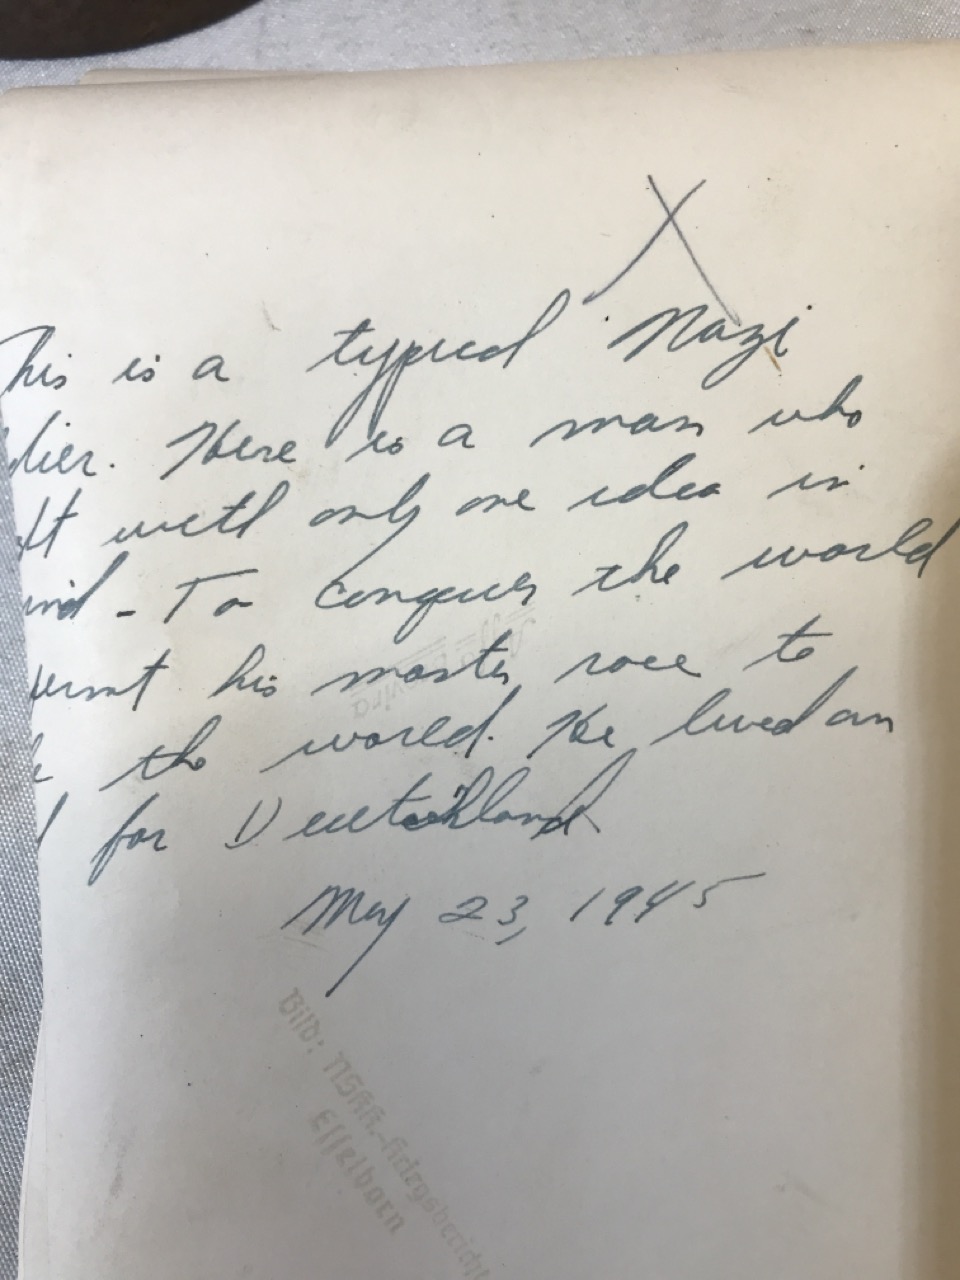 This is a typical Nazi
dier. Here is a man who
lt with only one idea in
ind - To conquer the world
his master race to
the world. He lived an
d for Deutschland
May 23, 1945
Bild: NSKK.-Kriegsbericht
Effelborn